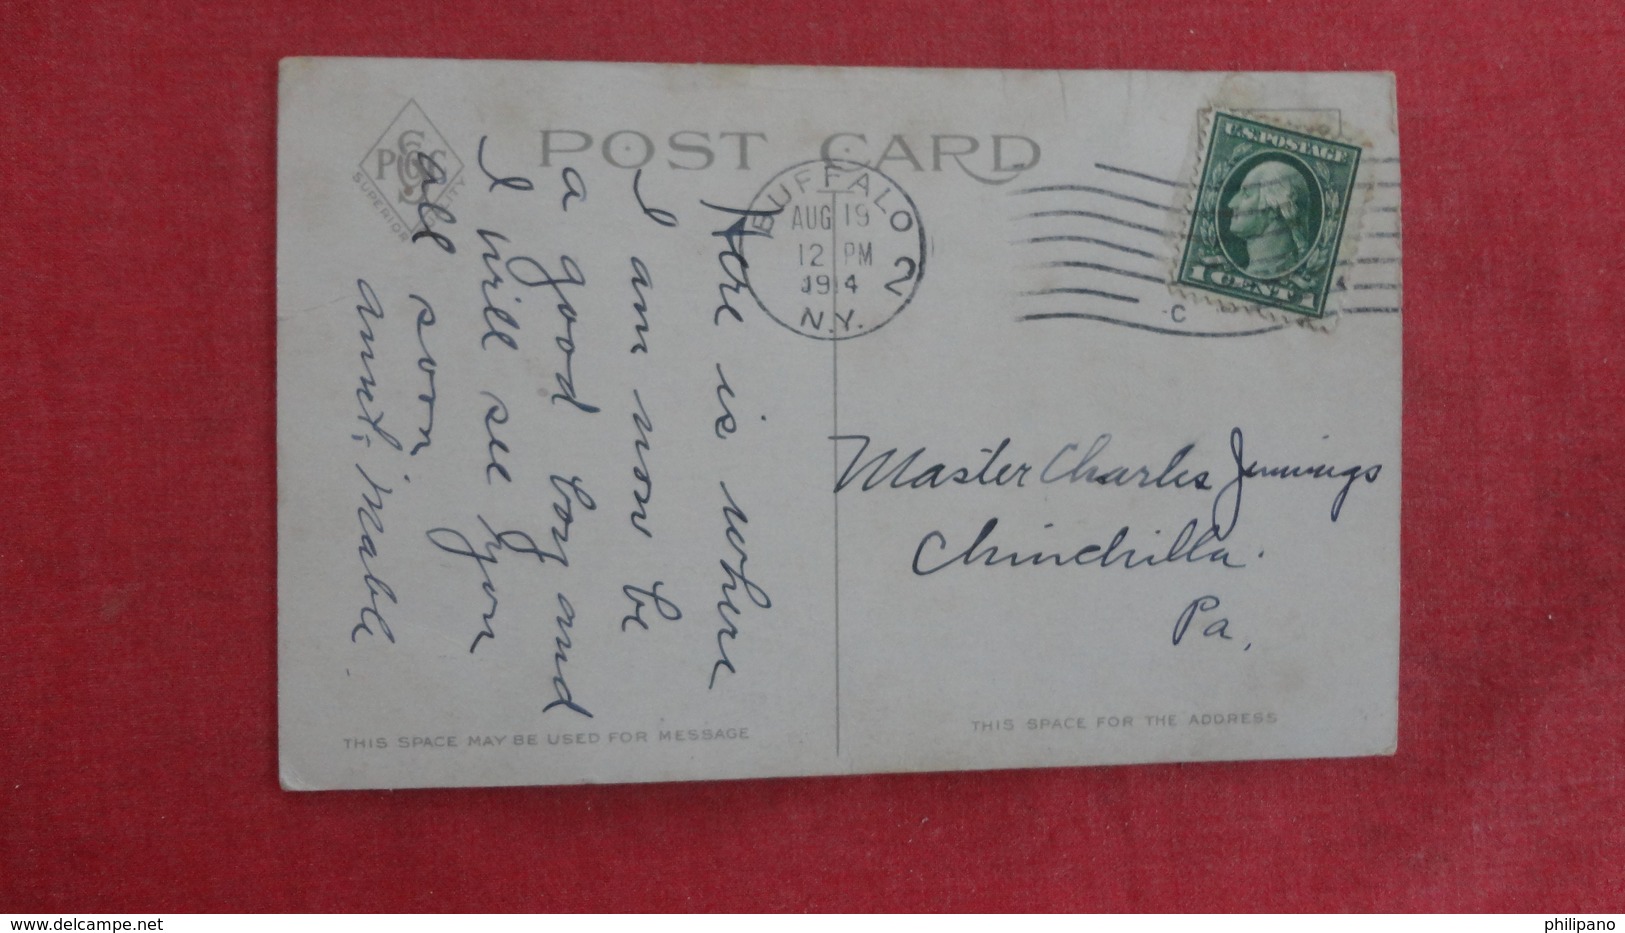 POST CARD
PCS
SUPERIOR QUALITY
BUFFALO 2
AUG 19
12 PM
1914
N.Y.
C
U.S. POSTAGE
1 CENT 1
Here is where
I am now be
a good boy and
I will see you
all soon
aunt, Mable.
Master Charles Jennings
Chinchilla.
Pa,
THIS SPACE MAY BE USED FOR MESSAGE
THIS SPACE FOR THE ADDRESS
www.delcampe.net
philipano